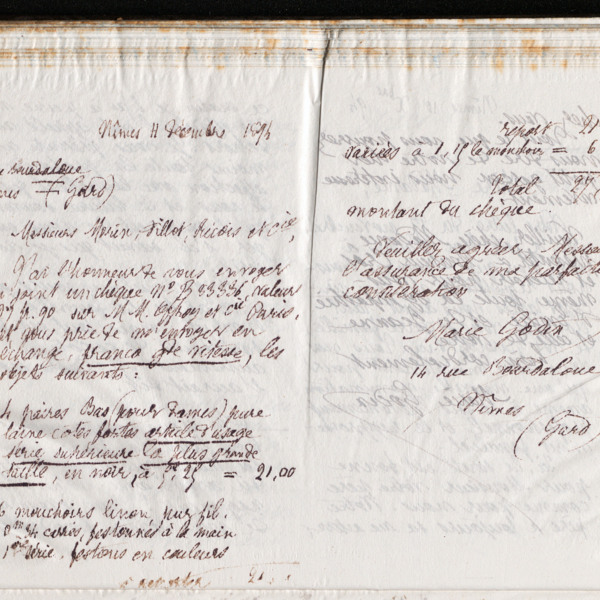 Nîmes 11 Décembre 1894
Bourdaloue
Gard)
Messieurs Morin, Fillot, Ricois et Cie,
J'ai l'honneur de vous envoyer
ci joint un chèque No B 23336 valeur
fr. 90 sur M.M. et Cie Paris.
et vous prie de m'envoyer en
échange, franco gde vitesse, les
objets suivants :
4 paires Bas (pour dames) pure
laine côtes fortes article d'usage
série supérieure la plus grande
taille, en noir, à 5f,25 = 21,00
6 mouchoirs linon, pur fil.
carrés, festonnés à la main
série, festons en couleurs
à reporter 21
report 21
variées à 1.15 le mouchoir = 6
Total
montant du chèque.
Veuillez agréer Messieurs
l'assurance de ma parfaite
considération
Marie Godin
14 rue Bourdaloue
Nîmes
(Gard)